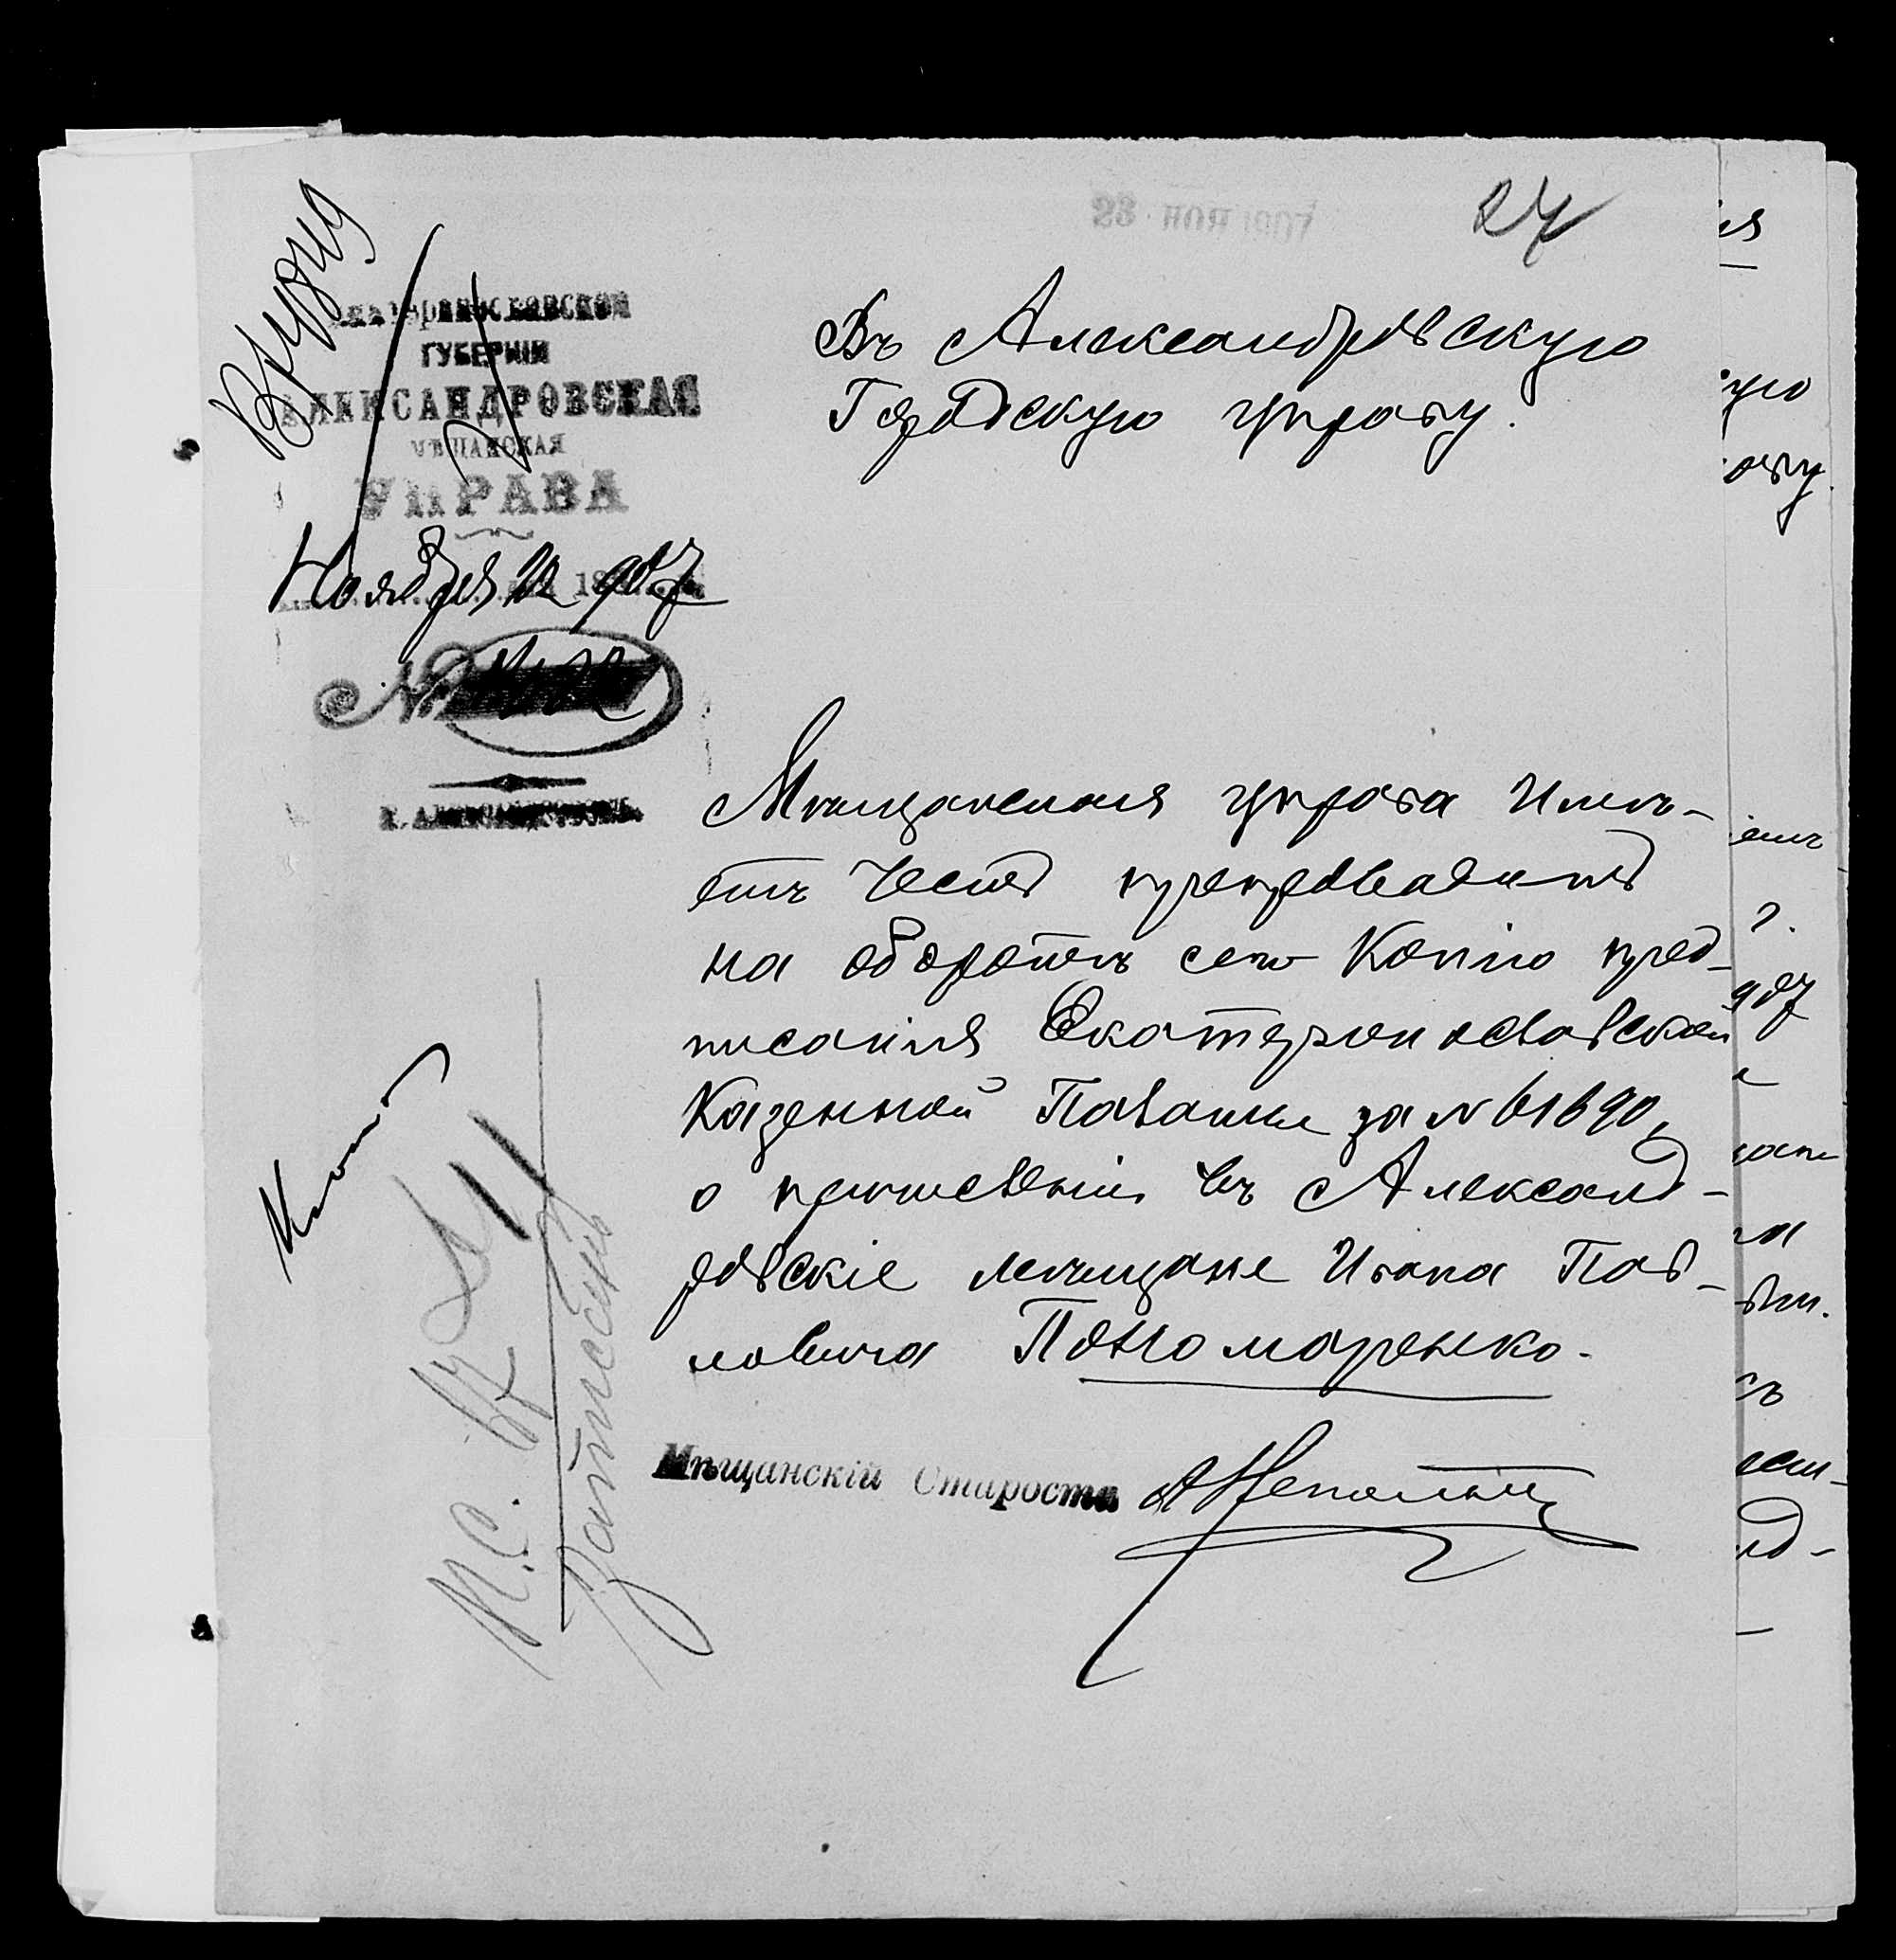 23 НОЯ 1907
27
Екатеринославской
ГУБЕРНІИ
АЛЕКСАНДРОВСКАЯ
МѢЩАНСКАЯ
УПРАВА
Ноября 22 907
№
Г. АЛЕКСАНДРОВСКЪ.
Въ Александровскую
Городскую управу.
Мѣщанская управа Имѣ-
етъ Честь препроводить
на оборотѣ сего Копію пред-
писанія Екатеринославской
Казенной Палаты за № 61690,
о причисленіи въ Александ-
ровскіе мѣщане Ивана Пав-
ловича Пономаренко.
Мѣщанскій Староста
М.С.
ую
аву.
907
ѣщ-
нд-